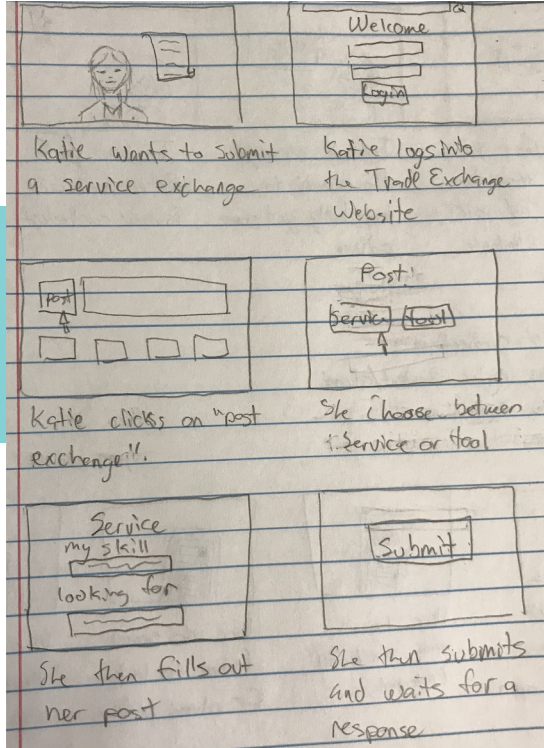 Welcome
Login
Katie wants to submit
a service exchange
Katie logs into
the Trade Exchange
Website
Post
Katie clicks on "post
exchange".
Post:
Service
tool
She choose between
Service or tool
Service
my skill
looking for
She then fills out
her post
Submit
She then submits
and waits for a
response